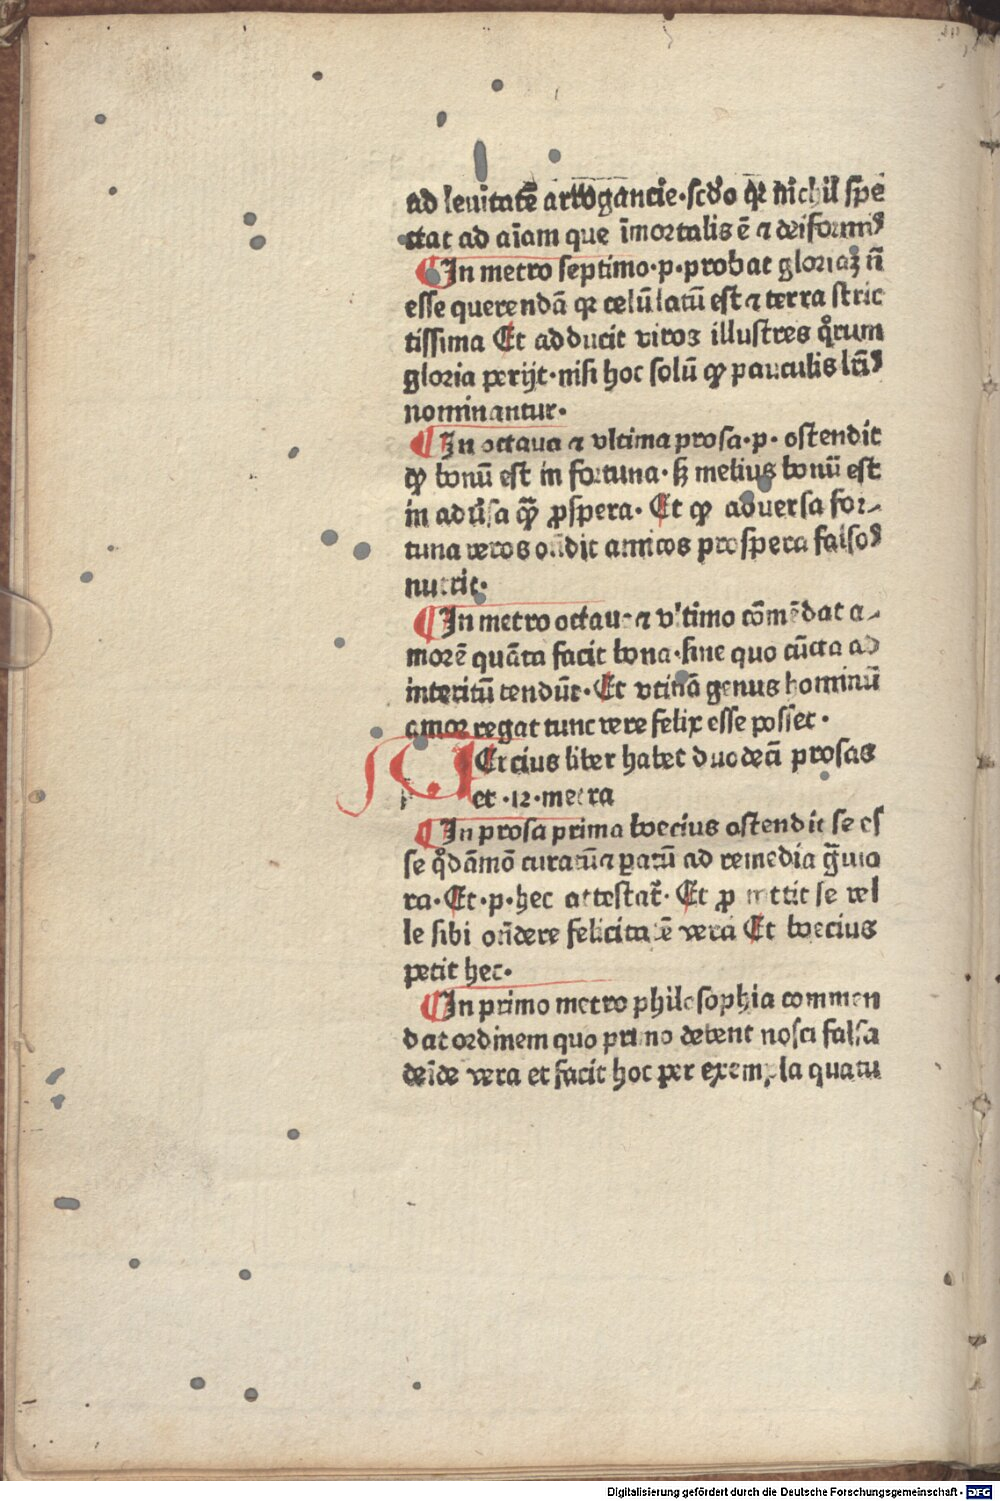 ad leuitatē arrogancie·scḋo qꝛ nichil spe
ctat ad aīam que īmortalis ē ⁊ deiformis
¶ In metro septimo·p·probat gloriaꝫ ñ
esse querendā qꝛ celū latū est ⁊ terra stric
tissima Et adducit viros illustres qͦrum
gloria perijt·nisi hoc solū ꝙ pauculis lr̄is
nominantur·
¶ In octaua ⁊ vltima prosa·p· ostendit
ꝙ bonū est in fortuna· sꝫ melius bonū est
in adūsa qͣꝫ ꝓspera· Et ꝙ aduersa for⸗
tuna veros oñdit amicos prospera falsos
nutrit·
¶ In metro octauo ⁊ vltimo cōmēdat a⸗
morē quāta facit bona·sine quo cūcta ad
interitū tendūt· Et vtinā genus hominū
amor regat tunc vere felix esse posset·
TErcius liber habet duodecī prosas
et ·12·metra
¶ In prosa prima boecius ostendit se es
se qͦdāmō curatū ⁊ ꝑatū ad remedia gͣuio
ra· Et·p·hec attestat᷑· Et ꝓmittit se vel
le sibi oñdere felicitatē verā Et boecius
petit hec·
¶ In primo metro philosophia commen
dat ordinem quo primo debent nosci falsa
deīde vera et facit hoc per exempla quatu
Digitalisierung gefördert durch die Deutsche Forschungsgemeinschaft - DFG